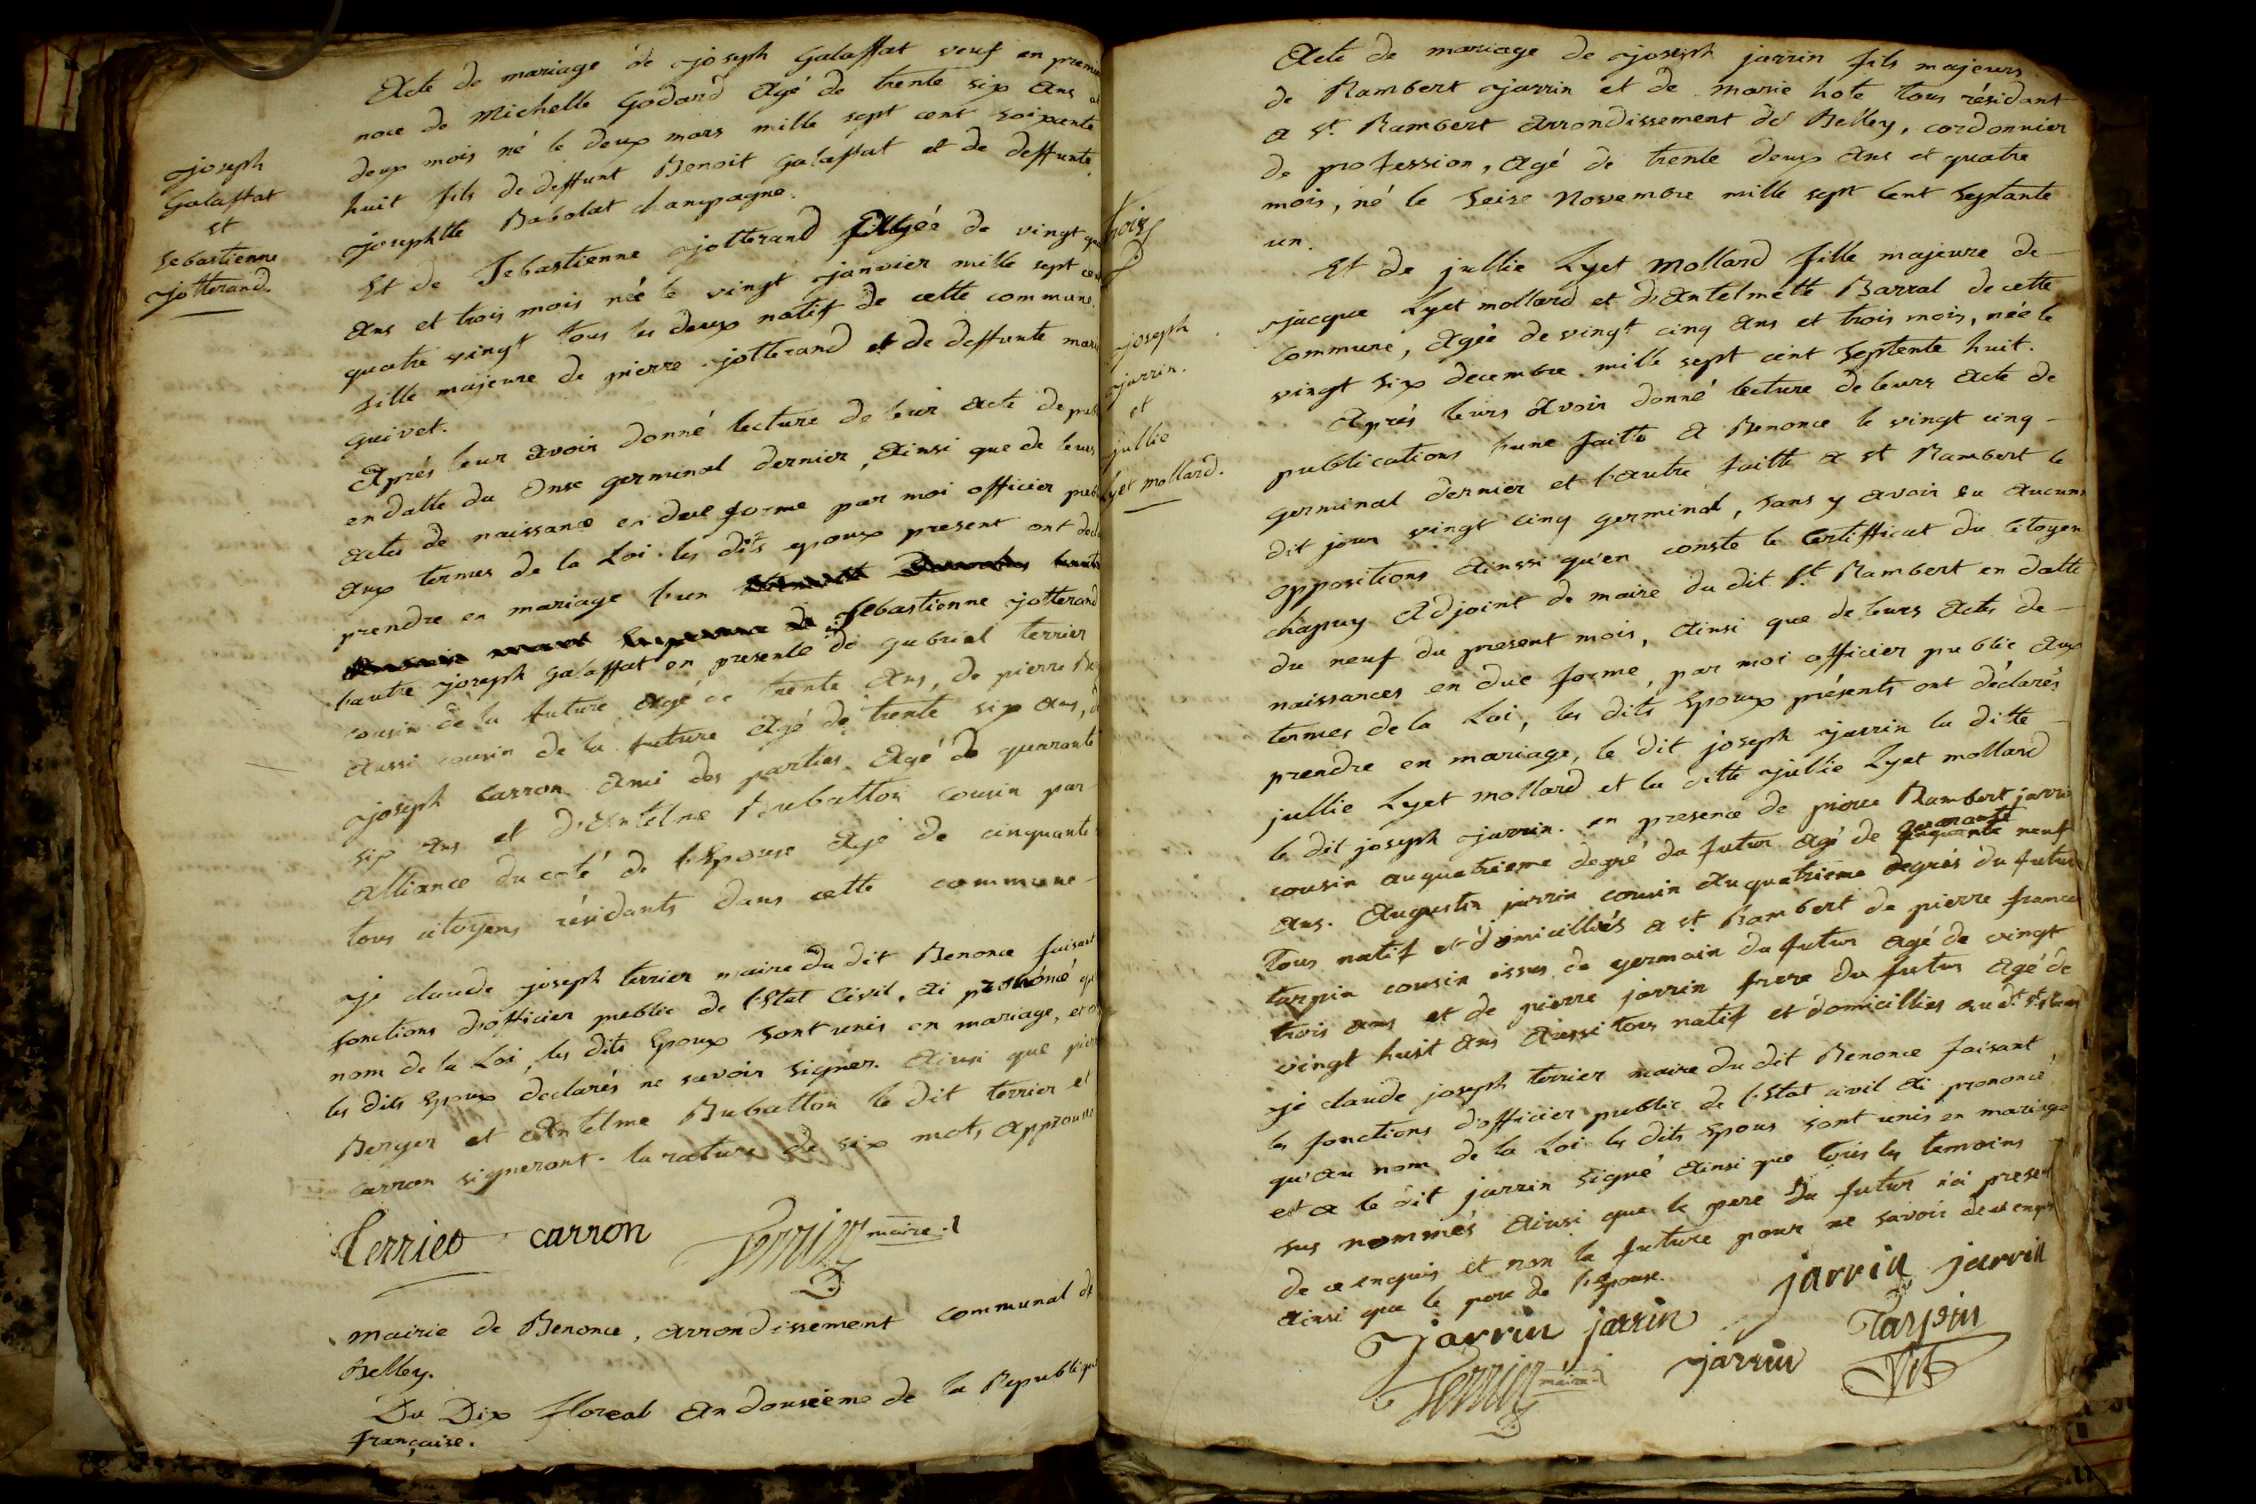 joseph
Galaffat
et
Sebastienne
jotterand.
Acte de mariage de joseph Galaffat veuf en premie
noce de Michelle Godard Agé de trente six Ans et
deux mois né le deux mars mille sept cent soixante
huit fils de deffunt Benoit Galaffat et de deffunte
josephtte Babolat champagne.
Et de Sebastienne jotterand Agée de vingt qua
Ans et trois mois née le vingt janvier mille sept cen
quatre vingt tous les deux natif de cette commune.
fille majeure de pierre jotterand et de deffunte mari
guivet.
Après leur avoir donné lecture de leur acte de publ
en datte du Onse germinal dernier, Ainsi que de leurs
actes de naissance en due forme par moi officier publ
Aux termes de la Loi les dits epoux present ont decl
prendre en mariage l'un
Sebastienne jotterand
l'autre joseph Galaffat en presence de gabriel terrier
cousin de la future Agé de trente Ans, de pierre Be
Aussi cousin de la future Agé de trente six Ans, d
joseph Carron Ami des parties Agé de quarante
six Ans et d'Antelme Bubatton cousin par
Alliance du coté de l'Epouse Agé de cinquante
tous citoyens résidants dans cette commune
je claude joseph terrier maire du dit Benonce faisant
fonctions d'officier public de l'Etat Civil, Ai prononcé qu
nom de la Loi, les dits Epoux sont unis en mariage, et o
les dits Epoux declarés ne savoir signer. Ainsi que pier
Berger et Antelme Bubatton le dit terrier et
Carron signeront. la rature de six mots approuvé
Terrier carron Terrier maire
Mairie de Benonce, arrondissement communal de
Belley.
Du Dix floreal An douzième de la Republique
française.
joseph
jarrin.
et
jullie
Lyet mollard.
Acte de mariage de joseph jarrin fils majeurs
de Rambert jarrin et de marie hote tous résidant
a St. Rambert Arrondissement de Belley, cordonnier
de profession, Agé de trente deux Ans et quatre
mois, né le Seise Novembre mille sept Cent Septante
un.
Et de jullie Lyet Mollard fille majeure de
jacque Lyet mollard et d'Antelmette Barral de cette
Commune, Agée de vingt cinq Ans et trois mois, née le
vingt six decembre mille sept cent Septente huit.
Après leurs Avoir donné lecture de leurs Acte de
publications l'une faitte A Benonce le vingt cinq
germinal dernier et l'autre faitte A St Rambert le
dit jour vingt cinq germinal, sans y avoir eu aucune
oppositions Ainssi qu'en conste le Certifficat du Citoyen
chapuy Adjoint de maire du dit St. Rambert en datte
du neuf du present mois, Ainsi que de leurs Actes de
naissances en due forme, par moi officier public Aux
termes de la Loi, les dits Epoux présents ont déclarés
prendre en mariage, le dit joseph jarrin la ditte
jullie Lyet mollard et la ditte jullie Lyet mollard
le dit joseph jarrin. en presence de pierre Rambert jarrin
cousin au quatrieme degré du futur Agé de quarante neuf
Ans. Augustin jarrin cousin Au quatrieme degrés du futur
Tous natif et domicilliés A St. Rambert de pierre france
tarpin cousin issus de germain du futur Agé de vingt
trois Ans et de pierre jarrin frere du futur Agé de
vingt huit Ans Aussi tous natif et domicilliés au dt. St. Ramb
je claude joseph terrier maire du dit Benonce faisant
les fonctions d'officier public de l'Etat civil Ai prononcé
qu'au nom de la Loi les dits Epous sont unis en mariage
et a le dit jarrin signé Ainsi que tous les temoins
sus nommés Ainsi que le pere du futur ici present
de ce enquis et non la future pour ne savoir de ce enquis
Ainsi que le pere de l'Epouse.
jarrin jarrin
Jarrin jarrin Tarpin
Terrier maire jarrin